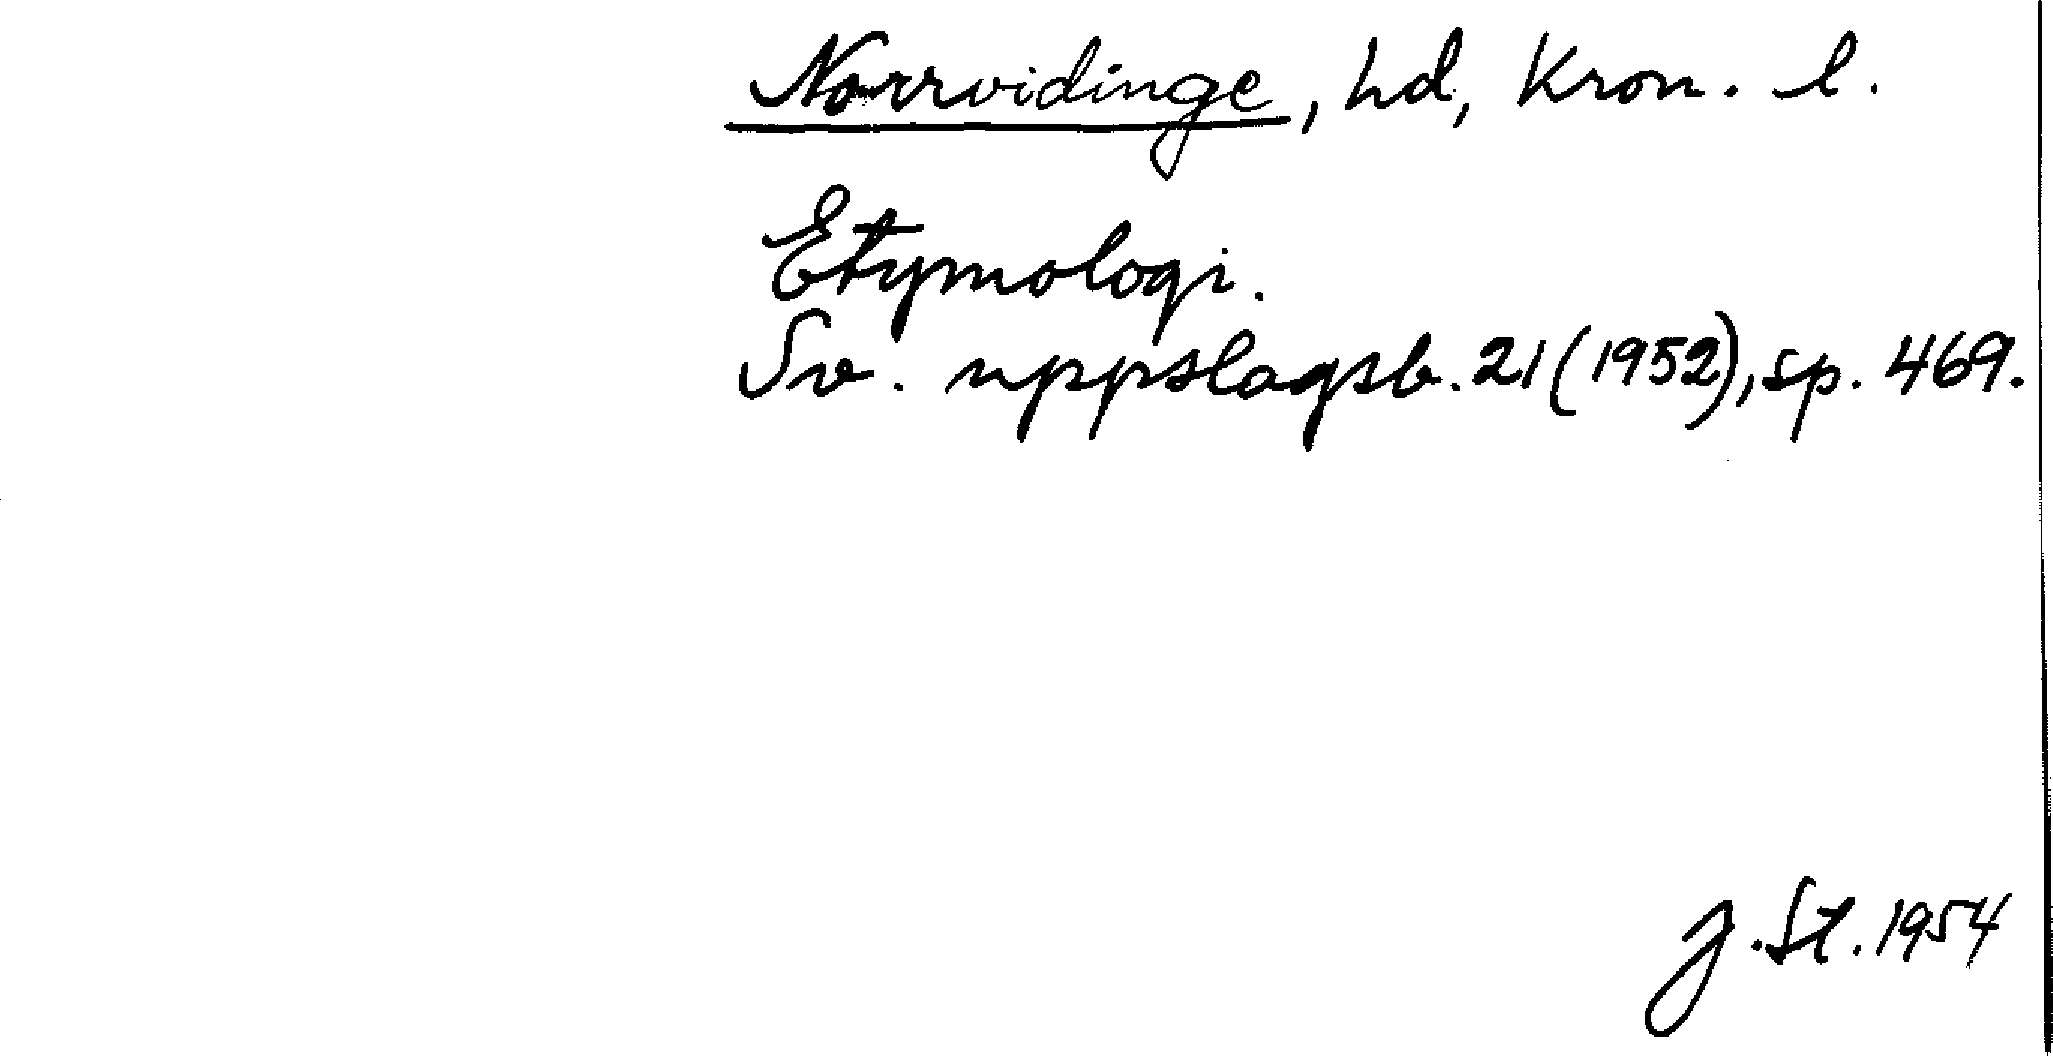 Norrvidinge, hd, Kron. l.
Etymologi.
Sv. uppslagsb. 21 (1952), sp. 469.
J. St. 1954